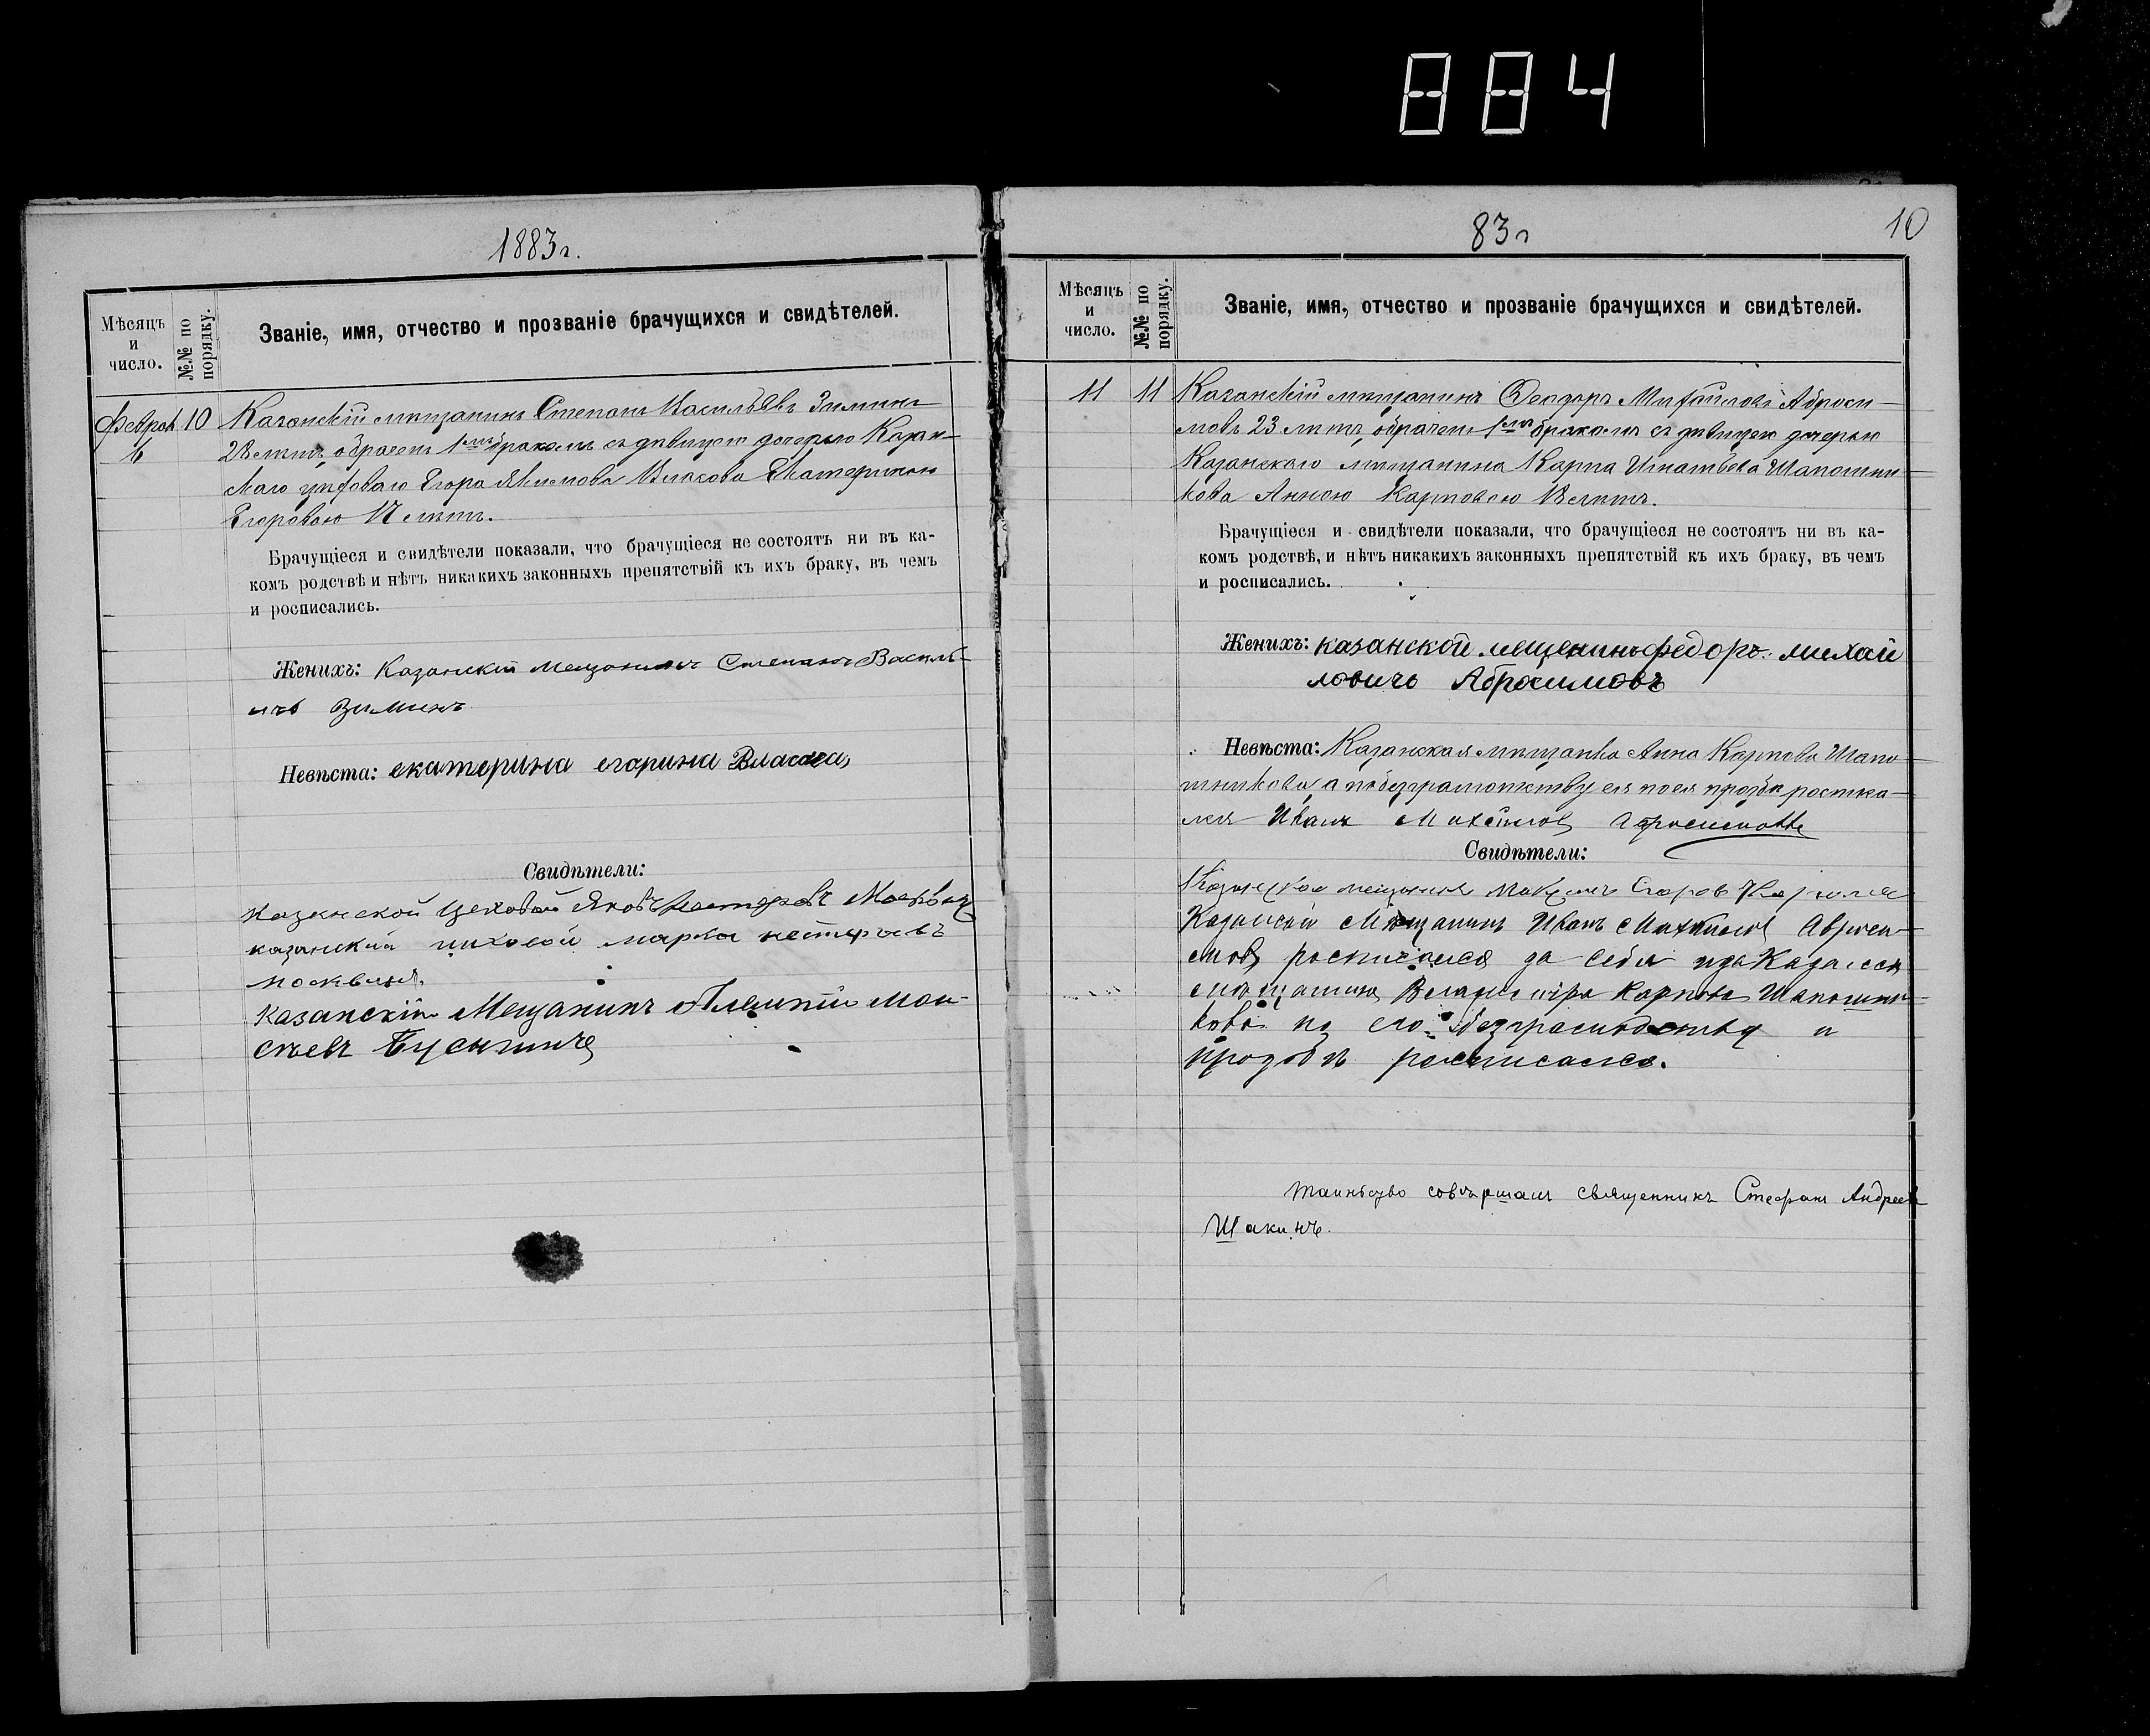 884
1883 г.
Мѣсяцъ
и
число.
№№ по
порядку.
Званіе, имя, отчество и прозваніе брачущихся и свидѣтелей.
Февраля 10 Казанскій мѣщанинъ Степанъ Васильевъ Зиминъ
6
лѣтъ, обрачен 1мъ бракомъ съ дѣвицею дочерью Казан-
скаго цеховаго Егора Власова Екатериною
Егоровою лѣтъ.
Брачущіеся и свидѣтели показали, что брачущіеся не состоятъ ни въ ка-
комъ родствѣ и нѣтъ никакихъ законныхъ препятствій къ ихъ браку, въ чемъ
и росписались.
Женихъ: Казанскій мещанинъ Степанъ Василь-
ичъ Зиминъ
Невѣста: екатерина егорина
Свидѣтели:
казанской цеховой Яковъ
казанский циховой марка нестеровъ
москвинъ
казанскій Мещанинъ Алексѣй Мои-
сѣевъ
83 г
10
Мѣсяцъ
и
число.
№№ по
порядку.
Званіе, имя, отчество и прозваніе брачущихся и свидѣтелей.
11 11 Казанскій мѣщанинъ Феодоръ Михайловъ Аброси-
мовъ 23 лѣтъ, обрачен 1мъ бракомъ съ дѣвицею дочерью
Казанскаго мѣщанина Карпа Игнатьева Шапошни-
кова Анною Карповою лѣтъ.
Брачущіеся и свидѣтели показали, что брачущіеся не состоятъ ни въ ка-
комъ родствѣ, и нѣтъ никакихъ законныхъ препятствій къ ихъ браку, въ чемъ
и росписались.
Женихъ: казанской мещенинъ федоръ михай
ловичъ Абросимовъ
Невѣста: Казанская мѣщанка Анна Карпова Шапо-
шникова, а по безграмотству ея по ея прозбѣ
Иванъ Михайлов
Свидѣтели:
мещанинъ Егоров
Казанский Мещанинъ Иванъ Михайлов
росписался за себя
Карпова Шапошни-
кова по его безграмотству и
прозбѣ росписался.
таинство совершалъ священникъ Стефанъ Андреевъ
Шакинъ.